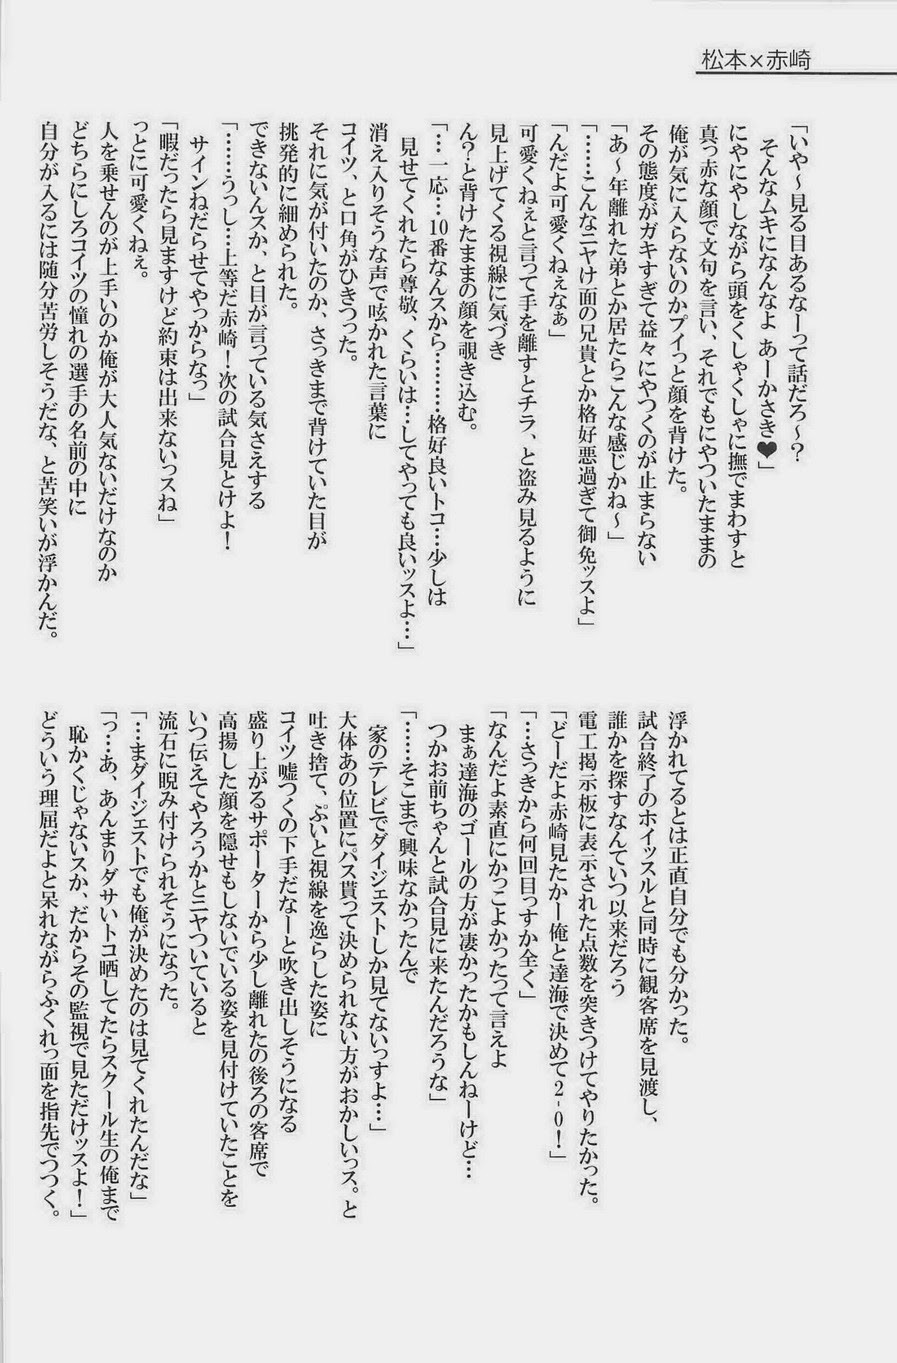 松本×赤崎
「いや〜見る目あるなーって話だろ〜？
そんなムキになんなよ あーかさき♥」
にやにやしながら頭をくしゃくしゃに撫でまわすと
真っ赤な顔で文句を言い、それでもにやついたままの
俺が気に入らないのかプイっと顔を背けた。
その態度がガキすぎて益々にやつくのが止まらない
「あ〜年離れた弟とか居たらこんな感じかね〜」
「……こんなニヤけ面の兄貴とか格好悪過ぎて御免ッスよ」
「んだよ可愛くねぇなぁ」
可愛くねぇと言って手を離すとチラ、と盗み見るように
見上げてくる視線に気づき
ん？と背けたままの顔を覗き込む。
「…一応…10番なんスから………格好良いトコ…少しは
見せてくれたら尊敬、くらいは…してやっても良いッスよ…」
消え入りそうな声で呟かれた言葉に
コイツ、と口角がひきつった。
それに気が付いたのか、さっきまで背けていた目が
挑発的に細められた。
できないんスか、と目が言っている気さえする
「……うっし…上等だ赤崎！次の試合見とけよ！
サインねだらせてやっからなっ」
「暇だったら見ますけど約束は出来ないっスね」
っとに可愛くねぇ。
人を乗せんのが上手いのか俺が大人気ないだけなのか
どちらにしろコイツの憧れの選手の名前の中に
自分が入るには随分苦労しそうだな、と苦笑いが浮かんだ。
浮かれてるとは正直自分でも分かった。
試合終了のホイッスルと同時に観客席を見渡し、
誰かを探すなんていつ以来だろう
電工掲示板に表示された点数を突きつけてやりたかった。
「どーだよ赤崎見たかー俺と達海で決めて2-0！」
「…さっきから何回目っすか全く」
「なんだよ素直にかっこよかったって言えよ
まぁ達海のゴールの方が凄かったかもしんねーけど…
つかお前ちゃんと試合見に来たんだろうな」
「……そこまで興味なかったんで
家のテレビでダイジェストしか見てないっすよ…」
大体あの位置にパス貰って決められない方がおかしいっス。と
吐き捨て、ぷいと視線を逸らした姿に
コイツ嘘つくの下手だなーと吹き出しそうになる
盛り上がるサポーターから少し離れたの後ろの客席で
高揚した顔を隠せもしないでいる姿を見付けていたことを
いつ伝えてやろうかとニヤついていると
流石に睨み付けられそうになった。
「…まダイジェストでも俺が決めたのは見てくれたんだな」
「っ…あ、あんまりダサいトコ晒してたらスクール生の俺まで
恥かくじゃないスか、だからその監視で見ただけッスよ！」
どういう理屈だよと呆れながらふくれっ面を指先でつつく。